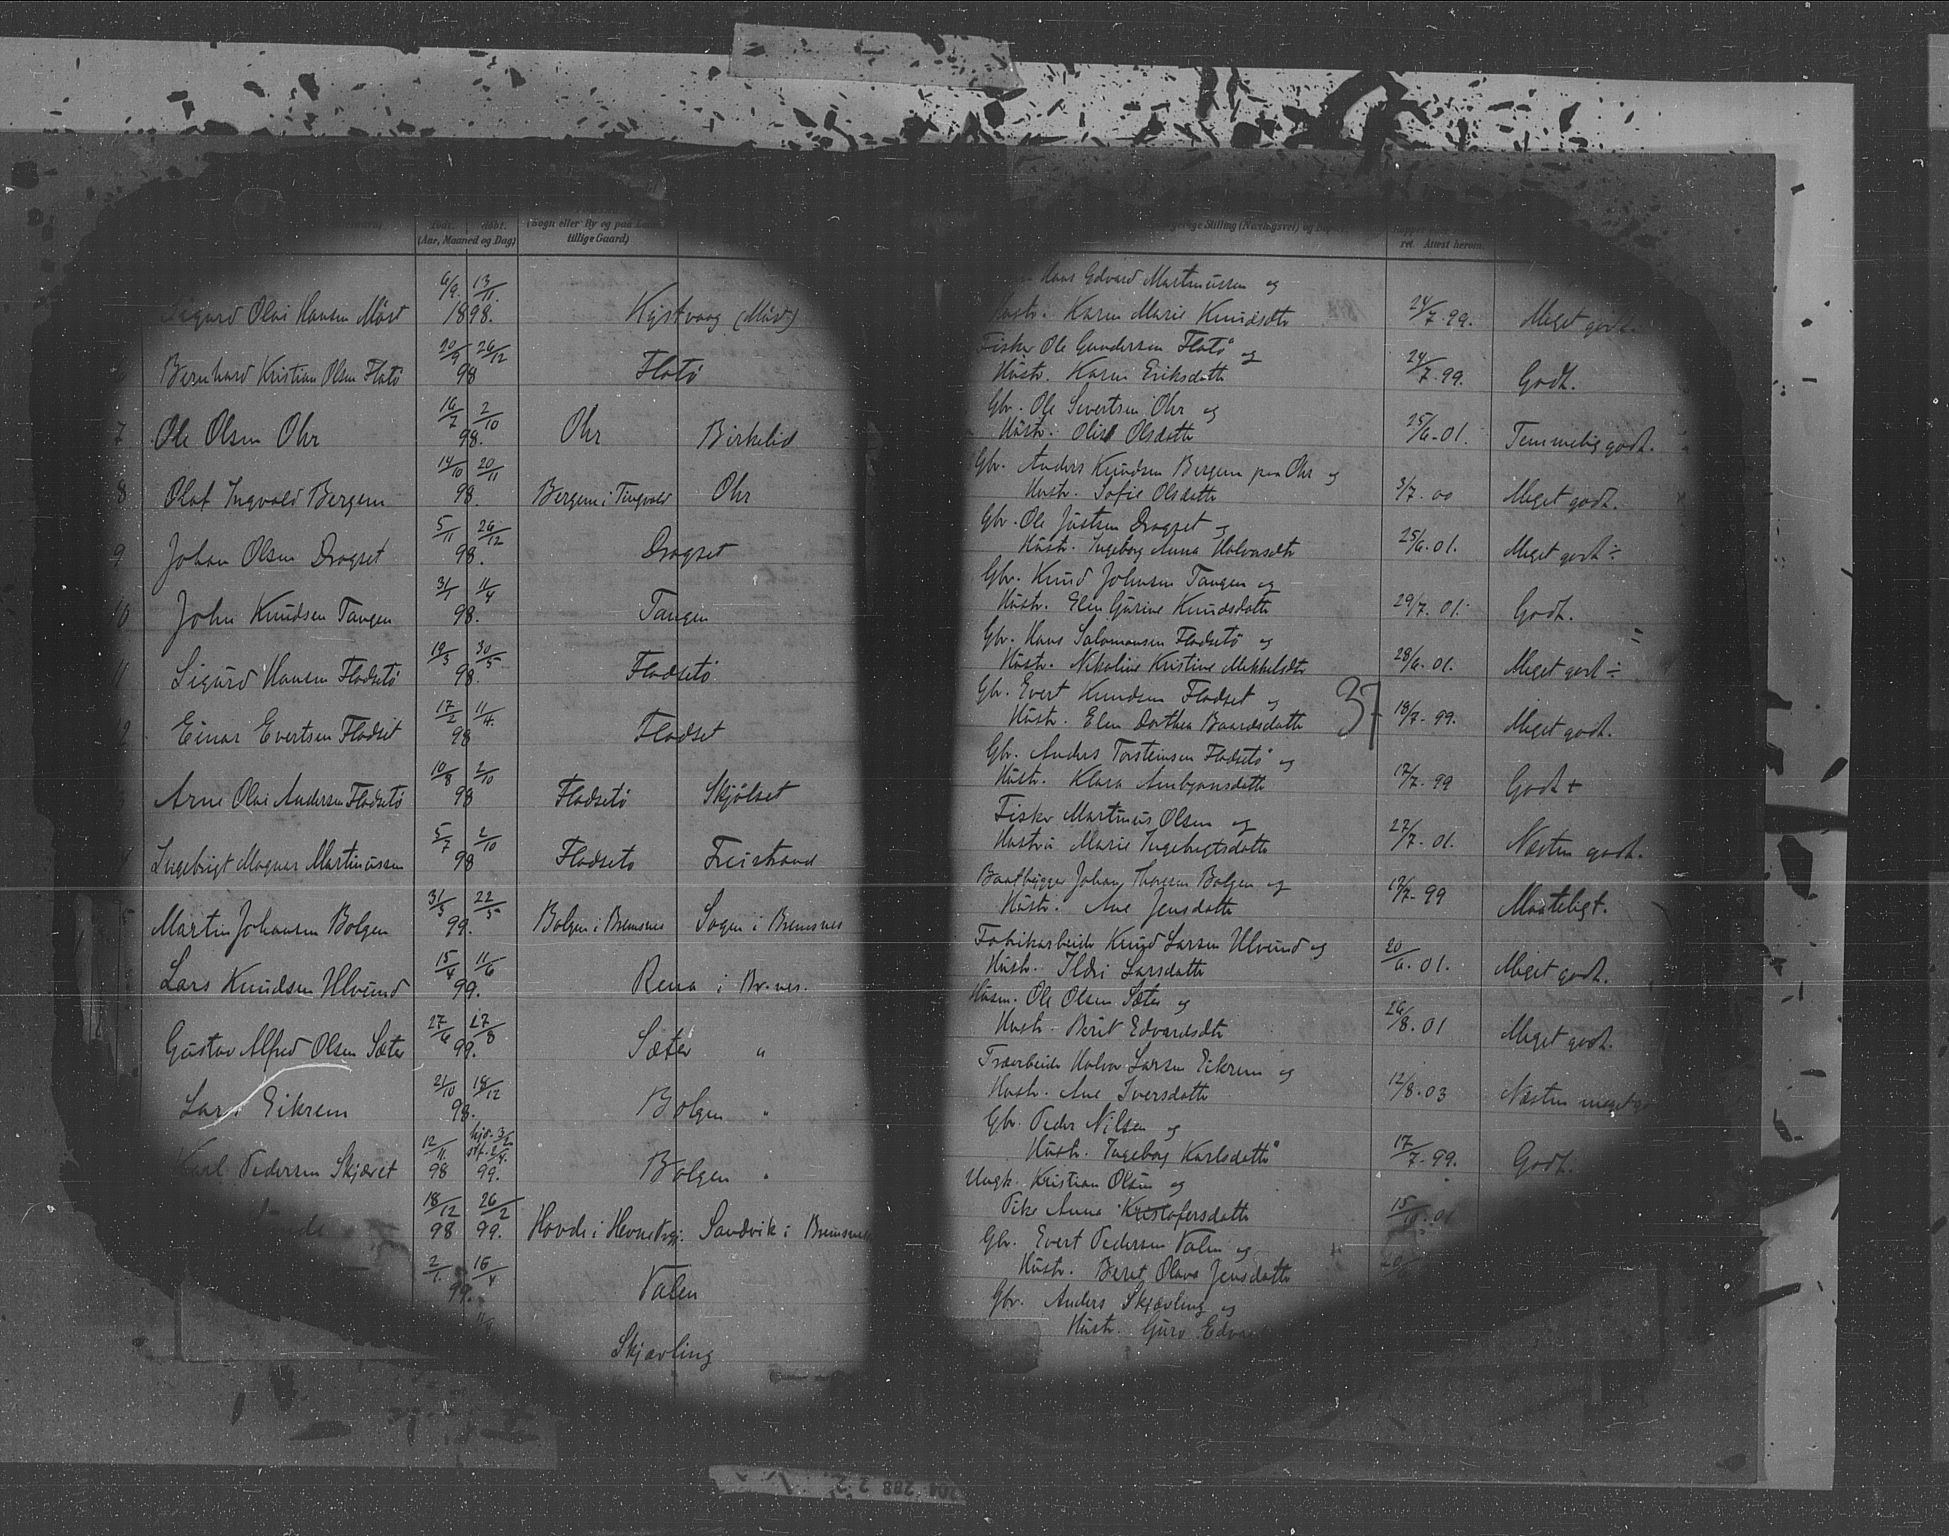 født. døbt. (Sogn eller By og paa
(Aar, Maaned og Dag) tillige Gaard)
Stilling (Næringsvei) og
ret. Attest herom.
6/9. 13/11. Hans Edvard Martinussen og
Sigurd Olai Hansen Möst 1898. Kystvaag (Möst) Hustr. Karen Marie Knudsdtr 24/7.99. Meget godt.
20/9 26/12 Fisker Ole Gundersen Flatö og
Bernhard Kristian Olsen Flatö 98 Flatö Hustr. Karen Eriksdatter 24/7.99. Godt.
16/2 2/10 Gbr. Ole Sivertsen Ohr og
7 Ole Olsen Ohr 98. Ohr Birkelid Hustr. Olsdatter 25/6-01. Temmelig godt.
14/10 20/11 Gbr. Anders Knudsen Bergem paa Ohr og
8 Olaf Ingvald Bergem 98. Bergem i Tingvold Ohr Hustr. Sofie Olsdatter 3/7.00 Meget godt.
5/11 26/12 Gbr. Ole Justsen Dragset og
9 Johan Olsen Dragset 98. Dragset Hustr. Ingeborg Anna Halvorsdtr 25/6.01. Meget godt ÷
3/1 11/4 Gbr. Knud Johnsen Tangen og
10 John Knudsen Tangen 98. Tangen Hustr. Elen Gurine Knudsdatter 29/7.01. Godt.
19/3 30/5 Gbr. Hans Salomonsen Fladsetö og
11 Sigurd Hansen Fladsetö 98. Fladsetö Hustr. Nikoline Kristine Mekkelsdtr 28/6.01. Meget godt ÷
17/2 11/4. Gbr. Evert Knudsen Fladset og
12 Einar Evertsen Fladset 98 Fladset Hustr. Elen Dorthea Baardsdatter 37 18/7-99. Meget godt.
10/8 2/10 Gbr. Anders Torsteinsen Fladsetö og
Arne Olai Andersen Fladsetö 98 Fladsetö Skjölset Hustr. Klara Arnbjørnsdatter 17/7-99 Godt +
5/7 2/10 Fisker Martinus Olsen og
Ingebrigt Magnar Martinussen 98 Fladsetö Freistrand Hustru Marie Ingebrigtsdatter 27/7.01. Næsten godt.
31/3 22/5 Baatbygger Johan Thoresen Bolgen og
Martin Johansen Bolgen 99. Bolgen i Bremsnes Sogn i Bremsnes Hustr. Ane Jensdatter 17/7-99 Maateligt.
15/4 11/6 Fabrikarbeider Knud Larsen Ulvund og
Lars Knudsen Ulvund 99. Rena i Br.nes. Hustr. Ildri Larsdatter 20/6.01. Meget godt.
27/6 27/8 Husm. Ole Olsen Sæter og
Gustav Alfred Olsen Sæter 99. Sæter " Hustr. Berit Edvardsdtr 26/8.01 Meget godt.
21/10 18/12 Træarbeider Halvor Larsen Eikrem og
Lars Eikrem 98. Bolgen " Hustr. Ane Iversdatter 12/8.03 Næsten meget
12/11. hjd. 3/2 Gbr. Peder Nilsen og
Karl Pedersen Skjæret 98 99. Bolgen " Hustr. Ingeborg Karlsdatter 17/7-99. Godt.
18/12 26/2 Ungk. Kristian Olsen og
98 99. Hovde i Hevne Sandvik i Bremsnes Pike Anna Kristofersdatter 15/10.01
2/1. 16/4 Gbr. Evert Pedersen Valen og
99. Valen Hustr. Beret Olava Jensdatter
Gbr. Anders Skjævling og
Skjævling Hustr. Guro
204 288 2 2